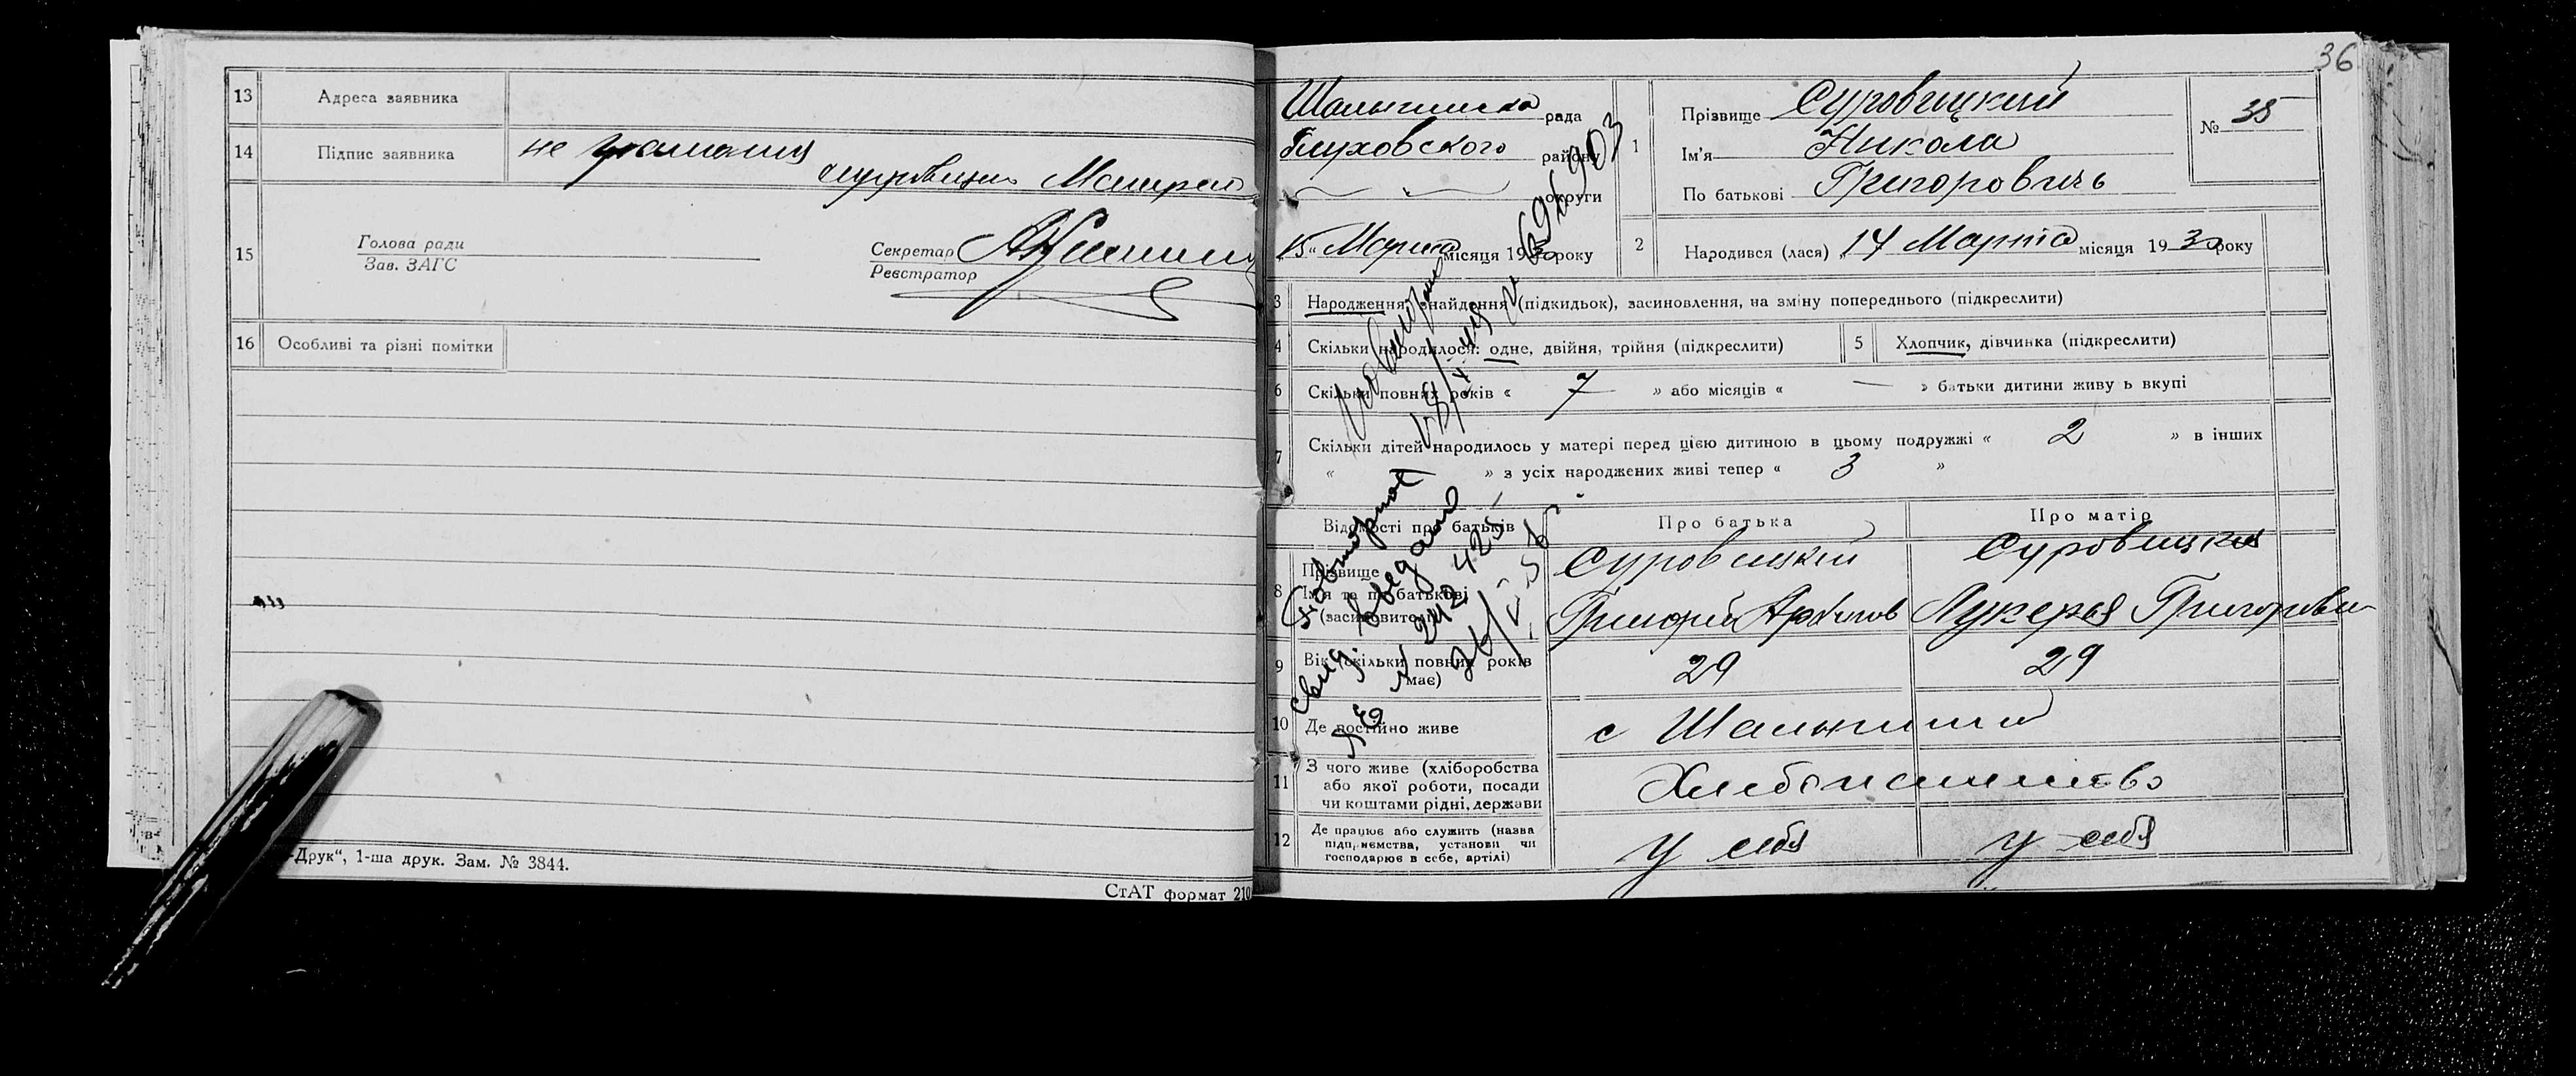 13 Адреса заявника
14 Підпис заявника не
15 Голова ради
Зав. ЗАГС
Секретар
Реєстратор
16 Особливі та різні помітки
-Друк“, 1-ша друк. Зам. № 3844.
СтАТ формат 210
36
рада
Глуховского район
округи
15 „ Марта місяця 19 року
1 Прізвище Суровицкий
Ім'я Никола
По батькові Григоровичь
№ 35
2 Народився (лася) „ 14 Марта місяця 1930 року
3 Народження, знайдення (підкидьок), засиновлення, на зміну попереднього (підкреслити)
4 Скільки народилося: одне, двійня, трійня (підкреслити)
5 Хлопчик, дівчинка (підкреслити)
6 Скільки повних років « 7 » або місяців « — » батьки дитини живу ь вкупі
7 Скільки дітей народилось у матері перед цією дитиною в цьому подружжі « 2 » в інших
« » з усіх народжених живі тепер « 3 »
Відомості про батьків Про батька Про матір
8 Прізвище Суровицкий Суровицкая
Ім'я та по батькові
(засиновителі) Григорий Лукерья Григоровн
9 Вік (скільки повних років має) 29 29
10 Де постійно живе с
11 З чого живе (хліборобства
або якої роботи, посади
чи коштами рідні, держави
12 Де працює або служить (назва
підприємства, установи чи
господарює в себе, артілі)
у себя у себя
Повторная
Повторно
свид. выдано
№ 242425